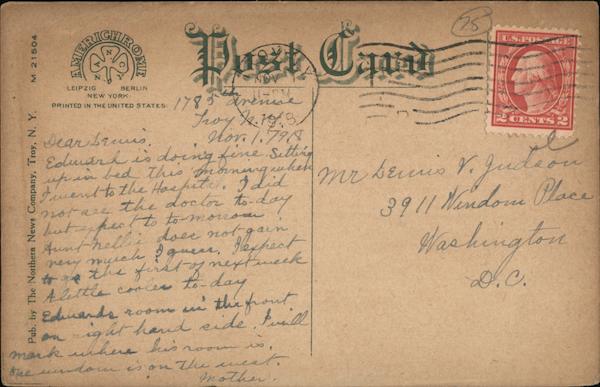 M 21504
AMERICHROME
LEIPZIG BERLIN
NEW YORK
PRINTED IN THE UNITED STATES
Post Card
25
U.S. POSTAGE
2 CENTS 2
Pub. by The Northern News Company, Troy, N. Y.
178 5th Avenue
Troy N.Y.
Nov. 1, 1918
Dear Dennis.
Edward is doing fine. Sitting
up in bed this morning when
I went to the Hospital. I did
not see the doctor to-day
but expect to to-morrow
Aunt Nellie does not gain
very much I guess. I expect
to go the first of next week
A little cooler to-day
Edwards room in the front
on right hand side. I will
mark where his room is.
one window is on the west.
Mother.
Mr Dennis V. Judson
3911 Windom Place
Washington
D.C.